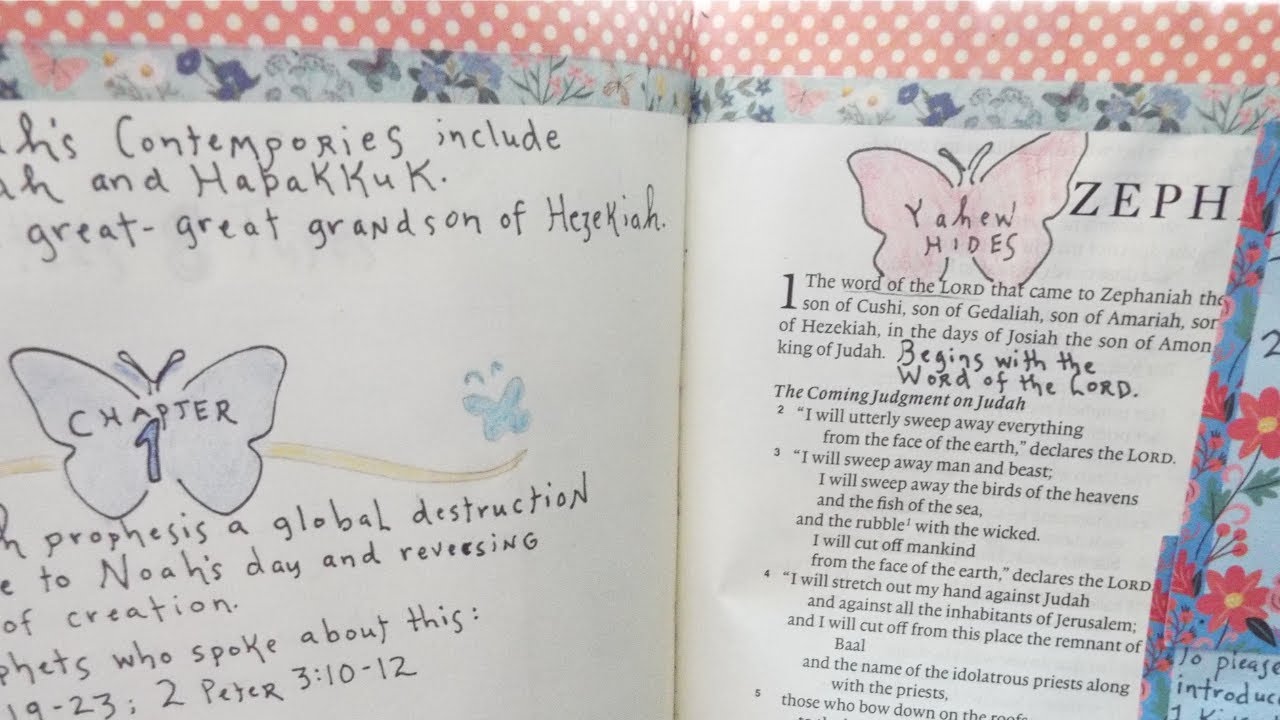 ah's Contempories include
ah and Habakkuk.
great-great grandson of Hezekiah.
CHAPTER
1
h prophesis a global destruction
e to Noah's day and reversing
of creation.
phets who spoke about this:
19-23; 2 Peter 3:10-12
Yahew
HIDES
ZEPH
1 The word of the LORD that came to Zephaniah the
son of Cushi, son of Gedaliah, son of Amariah, son
of Hezekiah, in the days of Josiah the son of Amon,
king of Judah. Begins with the
Word of the LORD.
The Coming Judgment on Judah
2 "I will utterly sweep away everything
from the face of the earth," declares the LORD.
3 "I will sweep away man and beast;
I will sweep away the birds of the heavens
and the fish of the sea,
and the rubble¹ with the wicked.
I will cut off mankind
from the face of the earth," declares the LORD.
4 "I will stretch out my hand against Judah
and against all the inhabitants of Jerusalem;
and I will cut off from this place the remnant of
Baal
and the name of the idolatrous priests along
with the priests,
5 those who bow down on the roofs
2
To please
introduc